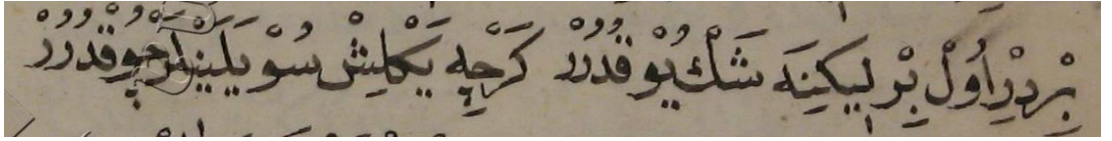 بِرْدِرْ اُولْ بِرْلِيكِينَه شَكْ يُوْقْدُرُرْ كَرْچِه يَكْلِشْ سُوْيَلَيَنْلَرْ چُوْقْدُرُرْ